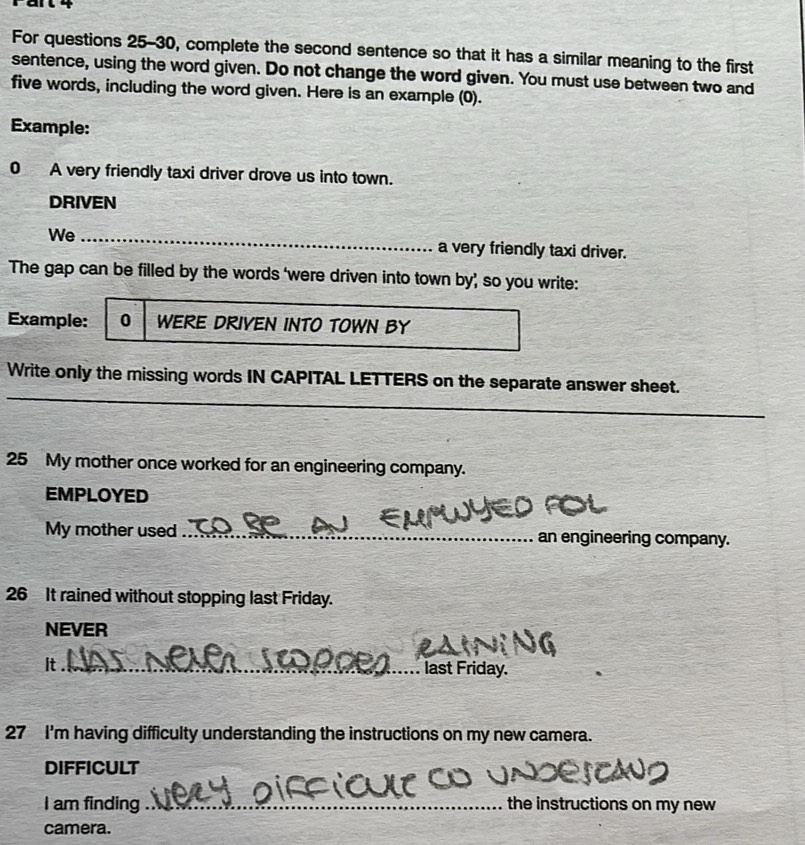 Part 4
For questions 25–30, complete the second sentence so that it has a similar meaning to the first
sentence, using the word given. Do not change the word given. You must use between two and
five words, including the word given. Here is an example (0).
Example:
0 A very friendly taxi driver drove us into town.
DRIVEN
We ........................................ a very friendly taxi driver.
The gap can be filled by the words ‘were driven into town by’, so you write:
Example: 0 WERE DRIVEN INTO TOWN BY
Write only the missing words IN CAPITAL LETTERS on the separate answer sheet.
25 My mother once worked for an engineering company.
EMPLOYED
My mother used TO BE AN EMPLOYED FOR an engineering company.
26 It rained without stopping last Friday.
NEVER
It HAS NEVER STOPPED RAINING last Friday.
27 I'm having difficulty understanding the instructions on my new camera.
DIFFICULT
I am finding VERY DIFFICULT TO UNDERSTAND the instructions on my new
camera.